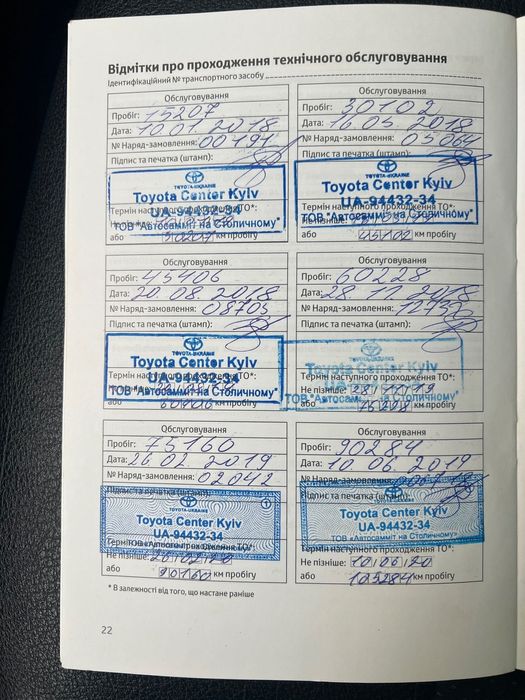 Відмітки про проходження технічного обслуговування
Ідентифікаційний № транспортного засобу
Обслуговування
Пробіг: 15207
Дата: 10.01.2018
№ Наряд-замовлення: 00191
Підпис та печатка (штамп):
TOYOTA-UKRAINE
Toyota Center Kyiv
UA-94432-34
Термін наступного проходження ТО*:
ТОВ "Автосамміт на Столичному"
або 30207 км пробігу
Обслуговування
Пробіг: 30102
Дата: 16.05.2018
№ Наряд-замовлення: 05064
Підпис та печатка (штамп):
TOYOTA-UKRAINE
Toyota Center Kyiv
UA-94432-34
Термін наступного проходження ТО*:
ТОВ "Автосамміт на Столичному"
або 45102 км пробігу
Обслуговування
Пробіг: 45406
Дата: 20.08.2018
№ Наряд-замовлення: 08705
Підпис та печатка (штамп):
TOYOTA-UKRAINE
Toyota Center Kyiv
UA-94432-34
ТОВ "Автосамміт на Столичному"
або 60406 км пробігу
Обслуговування
Пробіг: 60228
Дата: 28.11.2018
№ Наряд-замовлення: 12752
Підпис та печатка (штамп):
TOYOTA-UKRAINE
Toyota Center Kyiv
Термін наступного проходження ТО*:
Не пізніше: 28 11 19
ТОВ "Автосамміт на Столичному"
або 75228 км пробігу
Обслуговування
Пробіг: 75160
Дата: 26.02.2019
№ Наряд-замовлення: 02042
Підпис та печатка (штамп):
TOYOTA-UKRAINE
Toyota Center Kyiv
UA-94432-34
Термін наступного проходження ТО*:
Не пізніше: 26 02 20
або 90160 км пробігу
Обслуговування
Пробіг: 90284
Дата: 10.06.2019
№ Наряд-замовлення:
Підпис та печатка (штамп):
Toyota Center Kyiv
UA-94432-34
ТОВ «Автосамміт на Столичному»
Термін наступного проходження ТО*:
Не пізніше: 10 06 20
або 105284 км пробігу
* В залежності від того, що настане раніше
22